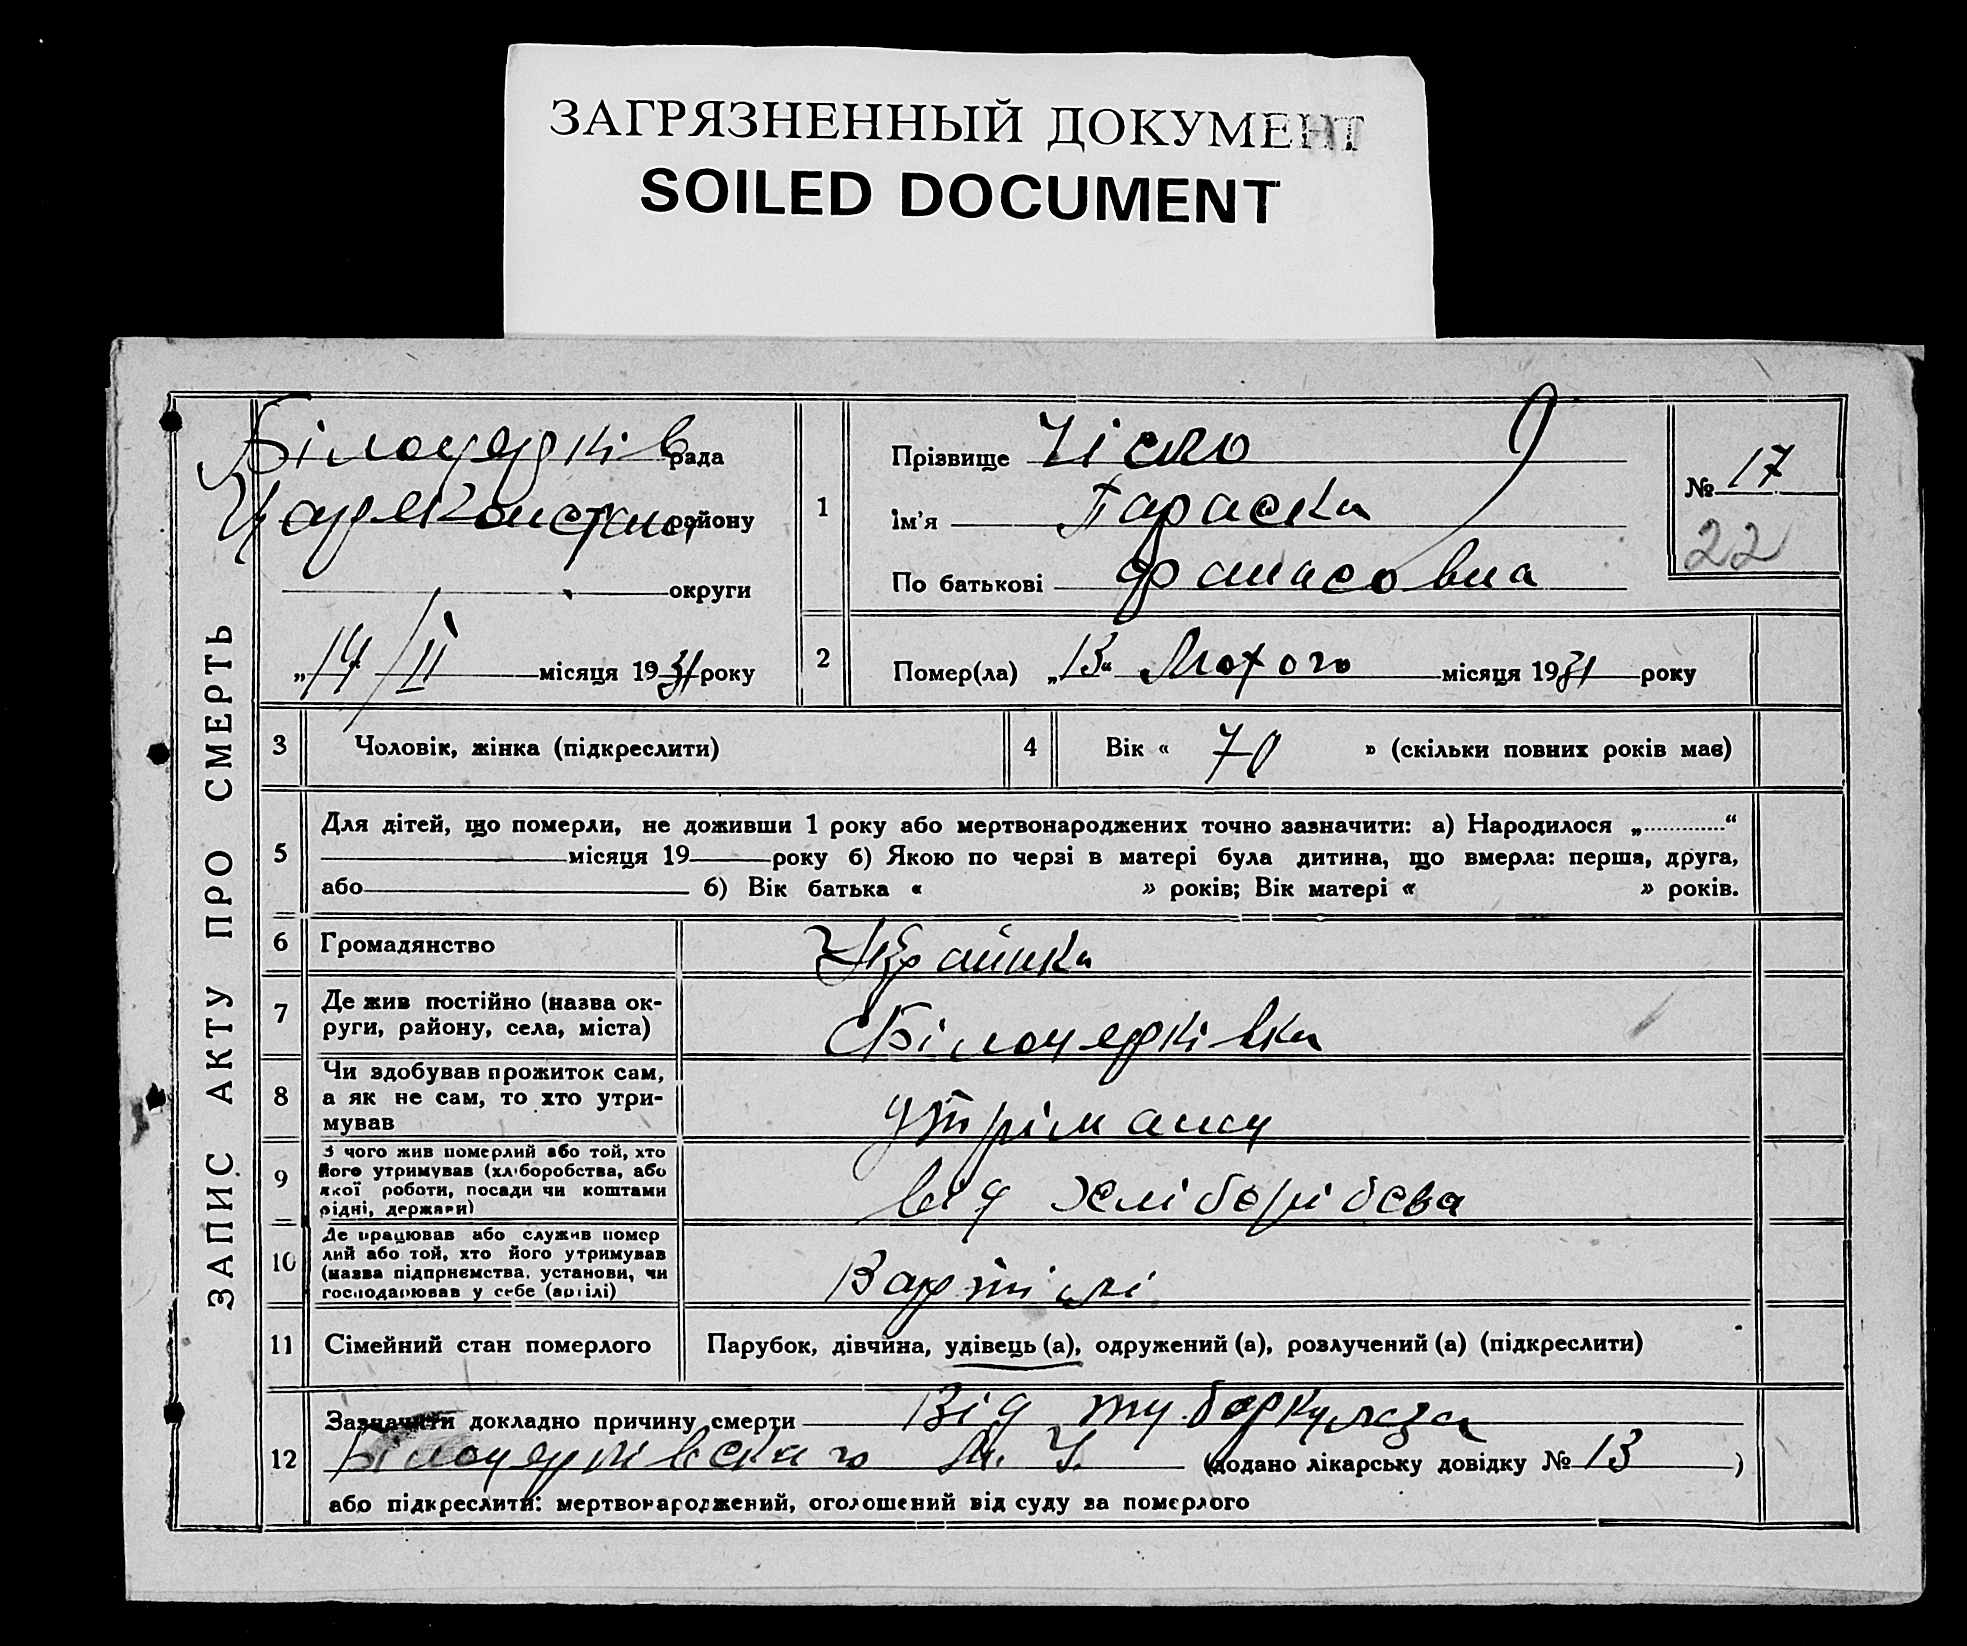 ЗАГРЯЗНЕННЫЙ ДОКУМЕНТ
SOILED DOCUMENT
ЗАПИС АКТУ ПРО СМЕРТЬ
Білоцерків рада
Царекомстант району
округи
„14/II місяця 1931 року
1
Прізвище Чісло
Ім'я Параска
По батькові Фанасовна
№ 17
22
2
Помер(ла) „13" Лютого місяця 1931 року
3 Чоловік, жінка (підкреслити)
4 Вік « 70 » (скільки повних років має)
5
Для дітей, що померли, не доживши 1 року або мертвонароджених точно зазначити: а) Народилося „............"
місяця 19 року б) Якою по черзі в матері була дитина, що вмерла: перша, друга,
або б) Вік батька « » років; Вік матері « » років.
6 Громадянство Українка
7 Де жив постійно (назва ок-
руги, району, села, міста) Білоцерківка
8 Чи здобував прожиток сам,
а як не сам, то хто утри-
мував
9 З чого жив померлий або той, хто
його утримував (хліборобства, або
якої роботи, посади чи коштами
рідні, держави) від хліборобсва
10 Де працював або служив помер
лий або той, хто його утримував
(назва підприємства, установи, чи
господарював у себе (артілі) В артілі
11 Сімейний стан померлого Парубок, дівчина, удівець (а), одружений (а), розлучений (а) (підкреслити)
12
Зазначити докладно причину смерти Від туборкулєза
Білоцерківського М. У. (додано лікарську довідку № 13 )
або підкреслити: мертвонароджений, оголошений від суду за померлого